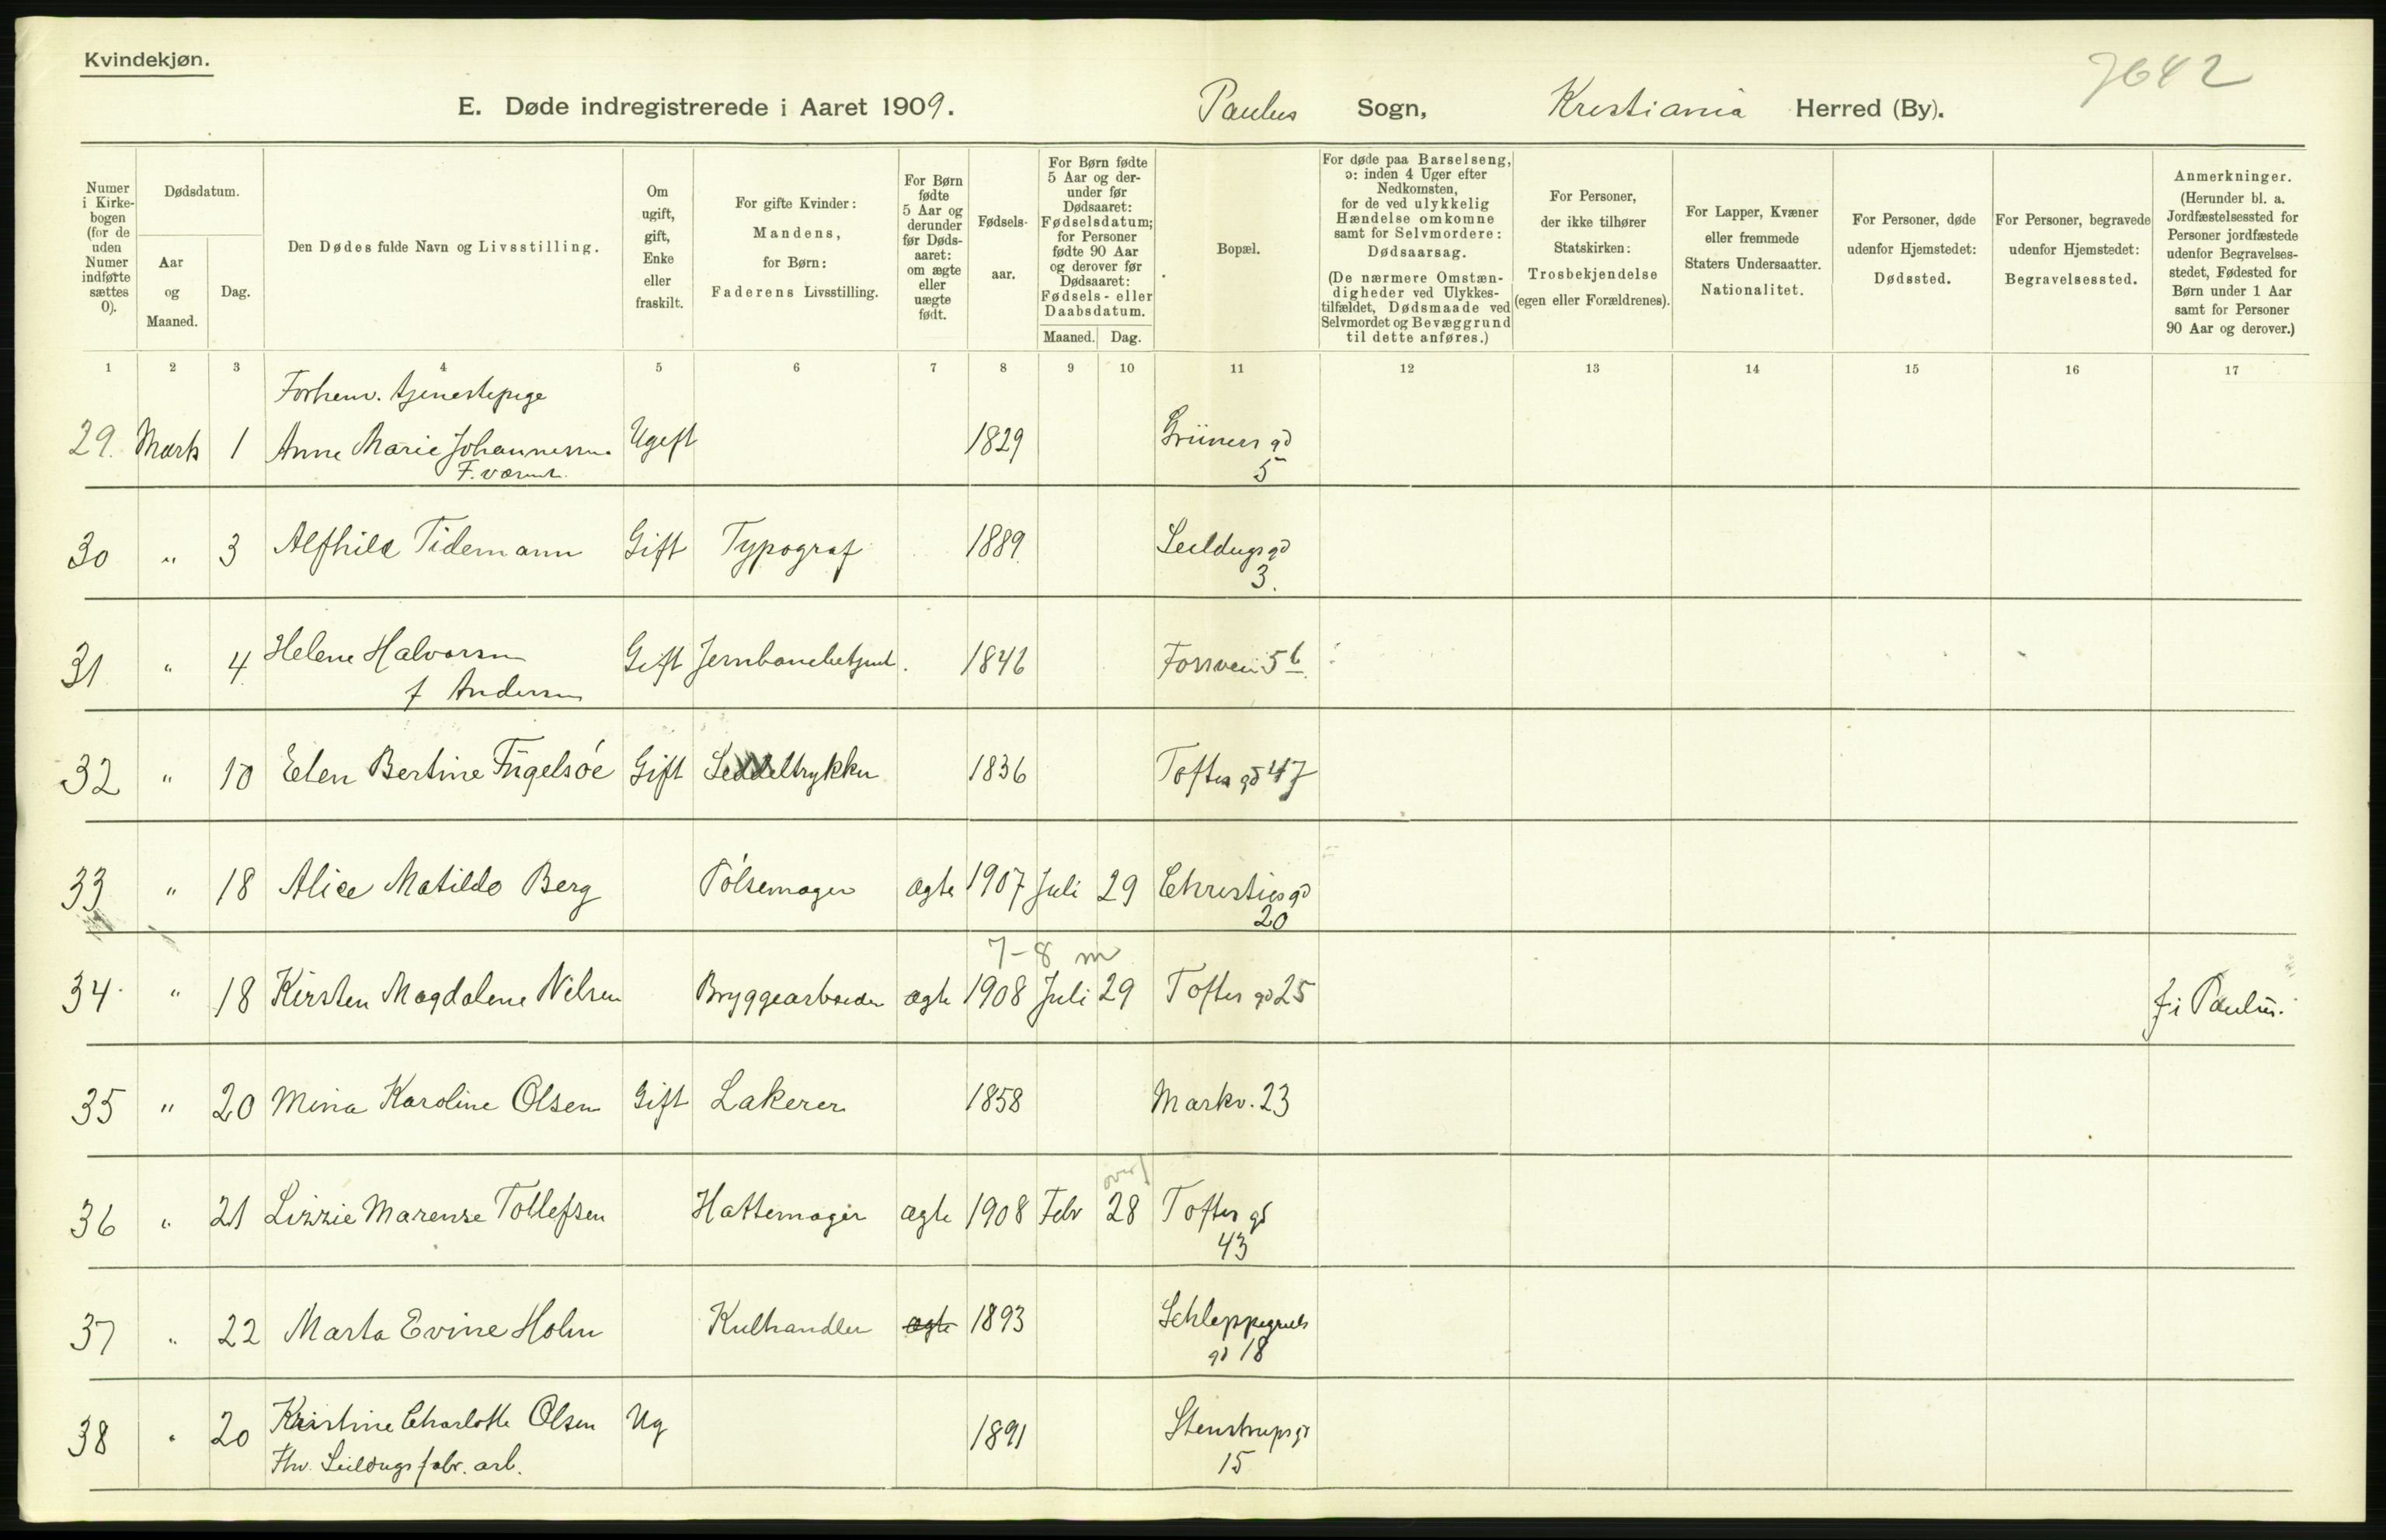 Kvindekjøn.
7642
E. Døde indregistrerede i Aaret 1909. Paulus Sogn, Kristiania Herred (By).
Numer i Kirkebogen (for de uden Numer indførte sættes 0).
Dødsdatum.
Aar og Maaned.
Dag.
Den Dødes fulde Navn og Livsstilling.
Om ugift, gift, Enke eller fraskilt.
For gifte Kvinder: Mandens, for Børn: Faderens Livsstilling.
For Børn fødte 5 Aar og derunder før Dødsaaret: om ægte eller uægte født.
Fødselsaar.
For Børn fødte 5 Aar og derunder før Dødsaaret: Fødselsdatum; for Personer fødte 90 Aar og derover før Dødsaaret: Fødsels- eller Daabsdatum.
Maaned. Dag.
Bopæl.
For døde paa Barselseng, ɔ: inden 4 Uger efter Nedkomsten, for de ved ulykkelig Hændelse omkomne samt for Selvmordere: Dødsaarsag.
(De nærmere Omstændigheder ved Ulykkestilfældet, Dødsmaade ved Selvmordet og Bevæggrund til dette anføres.)
For Personer, der ikke tilhører Statskirken: Trosbekjendelse (egen eller Forældrenes).
For Lapper, Kvæner eller fremmede Staters Undersaatter. Nationalitet.
For Personer, døde udenfor Hjemstedet: Dødssted.
For Personer, begravede udenfor Hjemstedet: Begravelsessted.
Anmerkninger.
(Herunder bl. a. Jordfæstelsessted for Personer jordfæstede udenfor Begravelsesstedet, Fødested for Børn under 1 Aar samt for Personer 90 Aar og derover.)
1 2 3 4 5 6 7 8 9 10 11 12 13 14 15 16 17
Forhenv. tjenestepige
29. Marts 1 Anne Marie Johannesen Ugift 1829 Grüners gd
5
30 " 3 Alfhild Tidemann Gift Typograf 1889 Seildugsgd
3.
31 " 4 Helene Halvorsen Gift Jernbanebetjent. 1846 Fossvein 5 b
f Andersen
32 " 10 Elen Bertine Fugelsöe Gift Seddeltrykker 1836 Toftes gd 47
33 " 18 Alice Matilde Berg Pölsemager ægte 1907 Juli 29 Christies gd
20
7-8 m
34 " 18 Kirsten Magdalene Nilsen Bryggearbeider ægte 1908 Juli 29 Toftes gd 25 f i Paulus.
35 " 20 Mina Karoline Olsen Gift Lakerer 1858 Markv. 23
over 1
36 " 21 Lizzie Marense Tollefsen Hattemager ægte 1908 Febr 28 Toftes gd
43
37 " 22 Marta Evine Holm Kulhandler ægte 1893 Schleppegrells
gd 18
38 " 20 Kristine Charlotte Olsen Ug 1891 Stenstrups gd
Fhv. Seildugs fabr. arb. 15